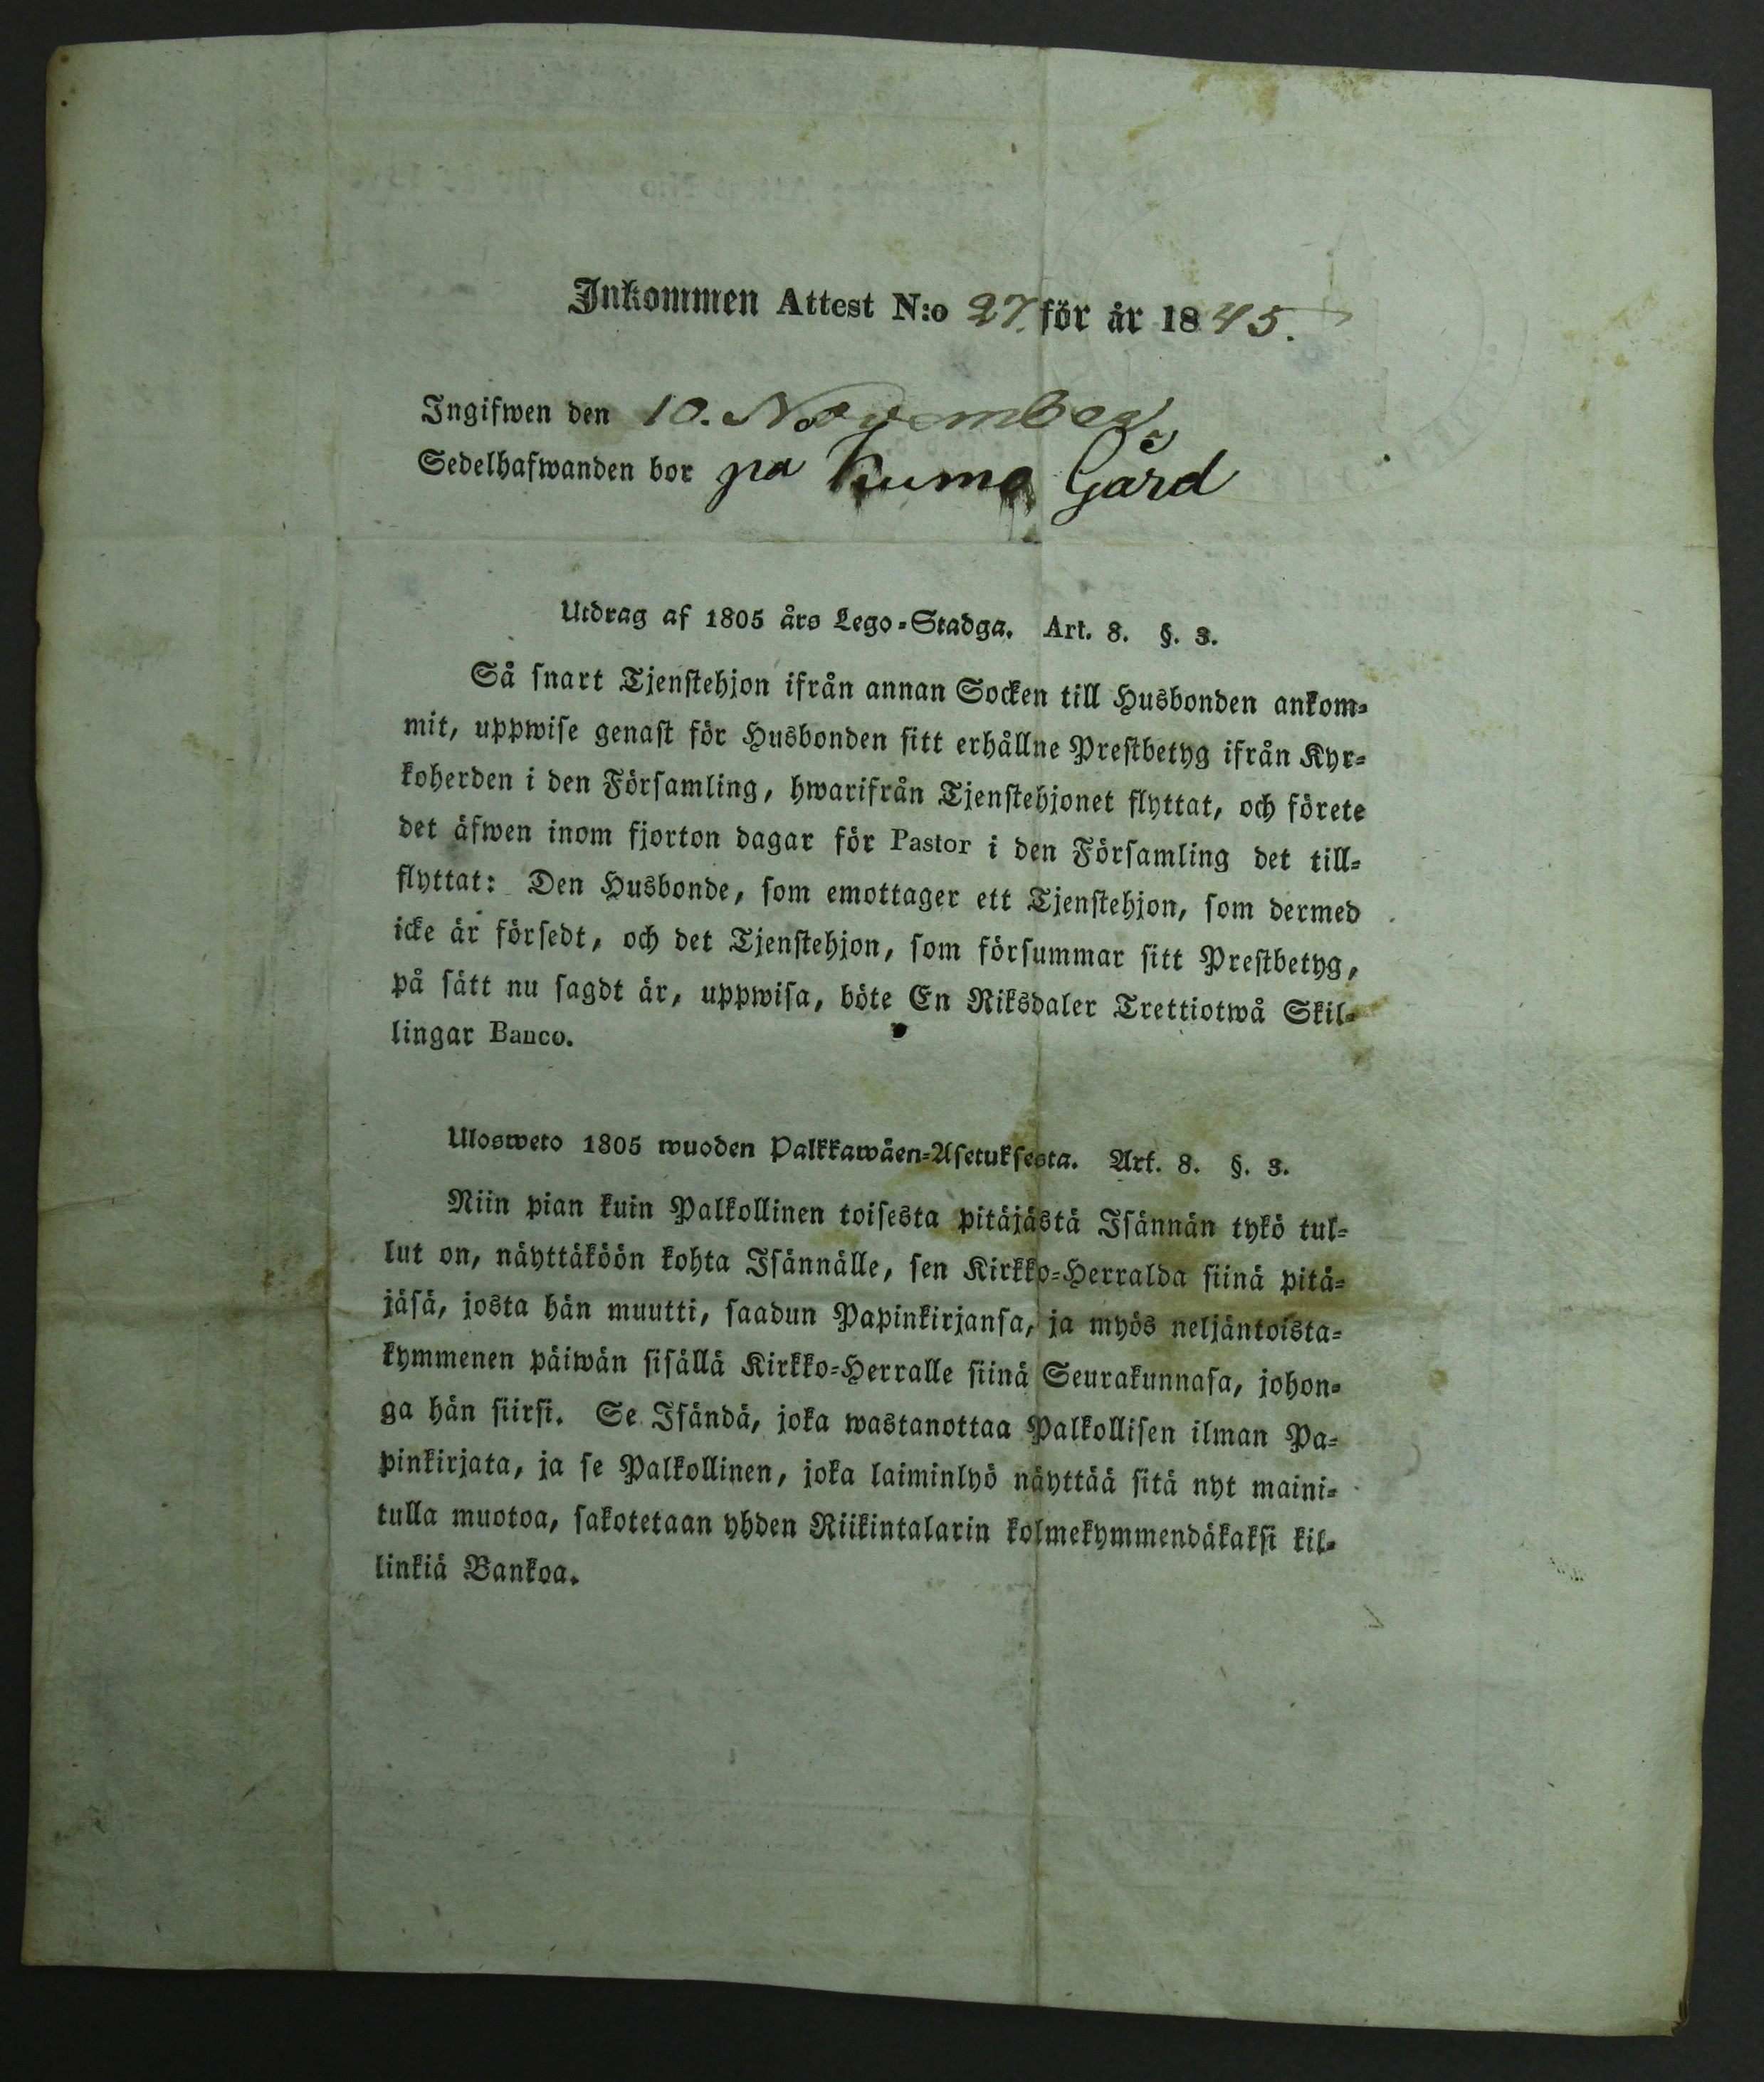 Inkommen Attest N:o 27. för år 1845.
Ingifwen den 10. November.
Sedelhafwanden bor på Kumo Gård
Utdrag af 1805 års Lego-Stadga. Art. 8. §. 3.
Så snart Tjenstehjon ifrån annan Socken till Husbonden ankom-
mit, uppwise genast för Husbonden sitt erhållne Prestbetyg ifrån Kyr-
koherden i den Församling, hwarifrån Tjenstehjonet flyttat, och förete
det äfwen inom fjorton dagar för Pastor i den Församling det till-
flyttat: Den Husbonde, som emottager ett Tjenstehjon, som dermed
icke är försedt, och det Tjenstehjon, som försummar sitt Prestbetyg,
på sätt nu sagdt är, uppwisa, böte En Riksdaler Trettiotwå Skil-
lingar Banco.
Ulosweto 1805 wuoden Palkkawäen-Asetuksesta. Art. 8. §. 3.
Niin pian kuin Palkollinen toisesta pitäjästä Isännän tykö tul-
lut on, näyttäköön kohta Isännälle, sen Kirkko-Herralda siinä pitä-
jäsä, josta hän muutti, saadun Papinkirjansa, ja myös neljäntoista-
kymmenen päiwän sisällä Kirkko-Herralle siinä Seurakunnasa, johon-
ga hän siirsi. Se Isändä, joka wastanottaa Palkollisen ilman Pa-
pinkirjata, ja se Palkollinen, joka laiminlyö näyttää sitä nyt maini-
tulla muotoa, sakotetaan yhden Riikintalarin kolmekymmendäkaksi kil-
linkiä Bankoa.